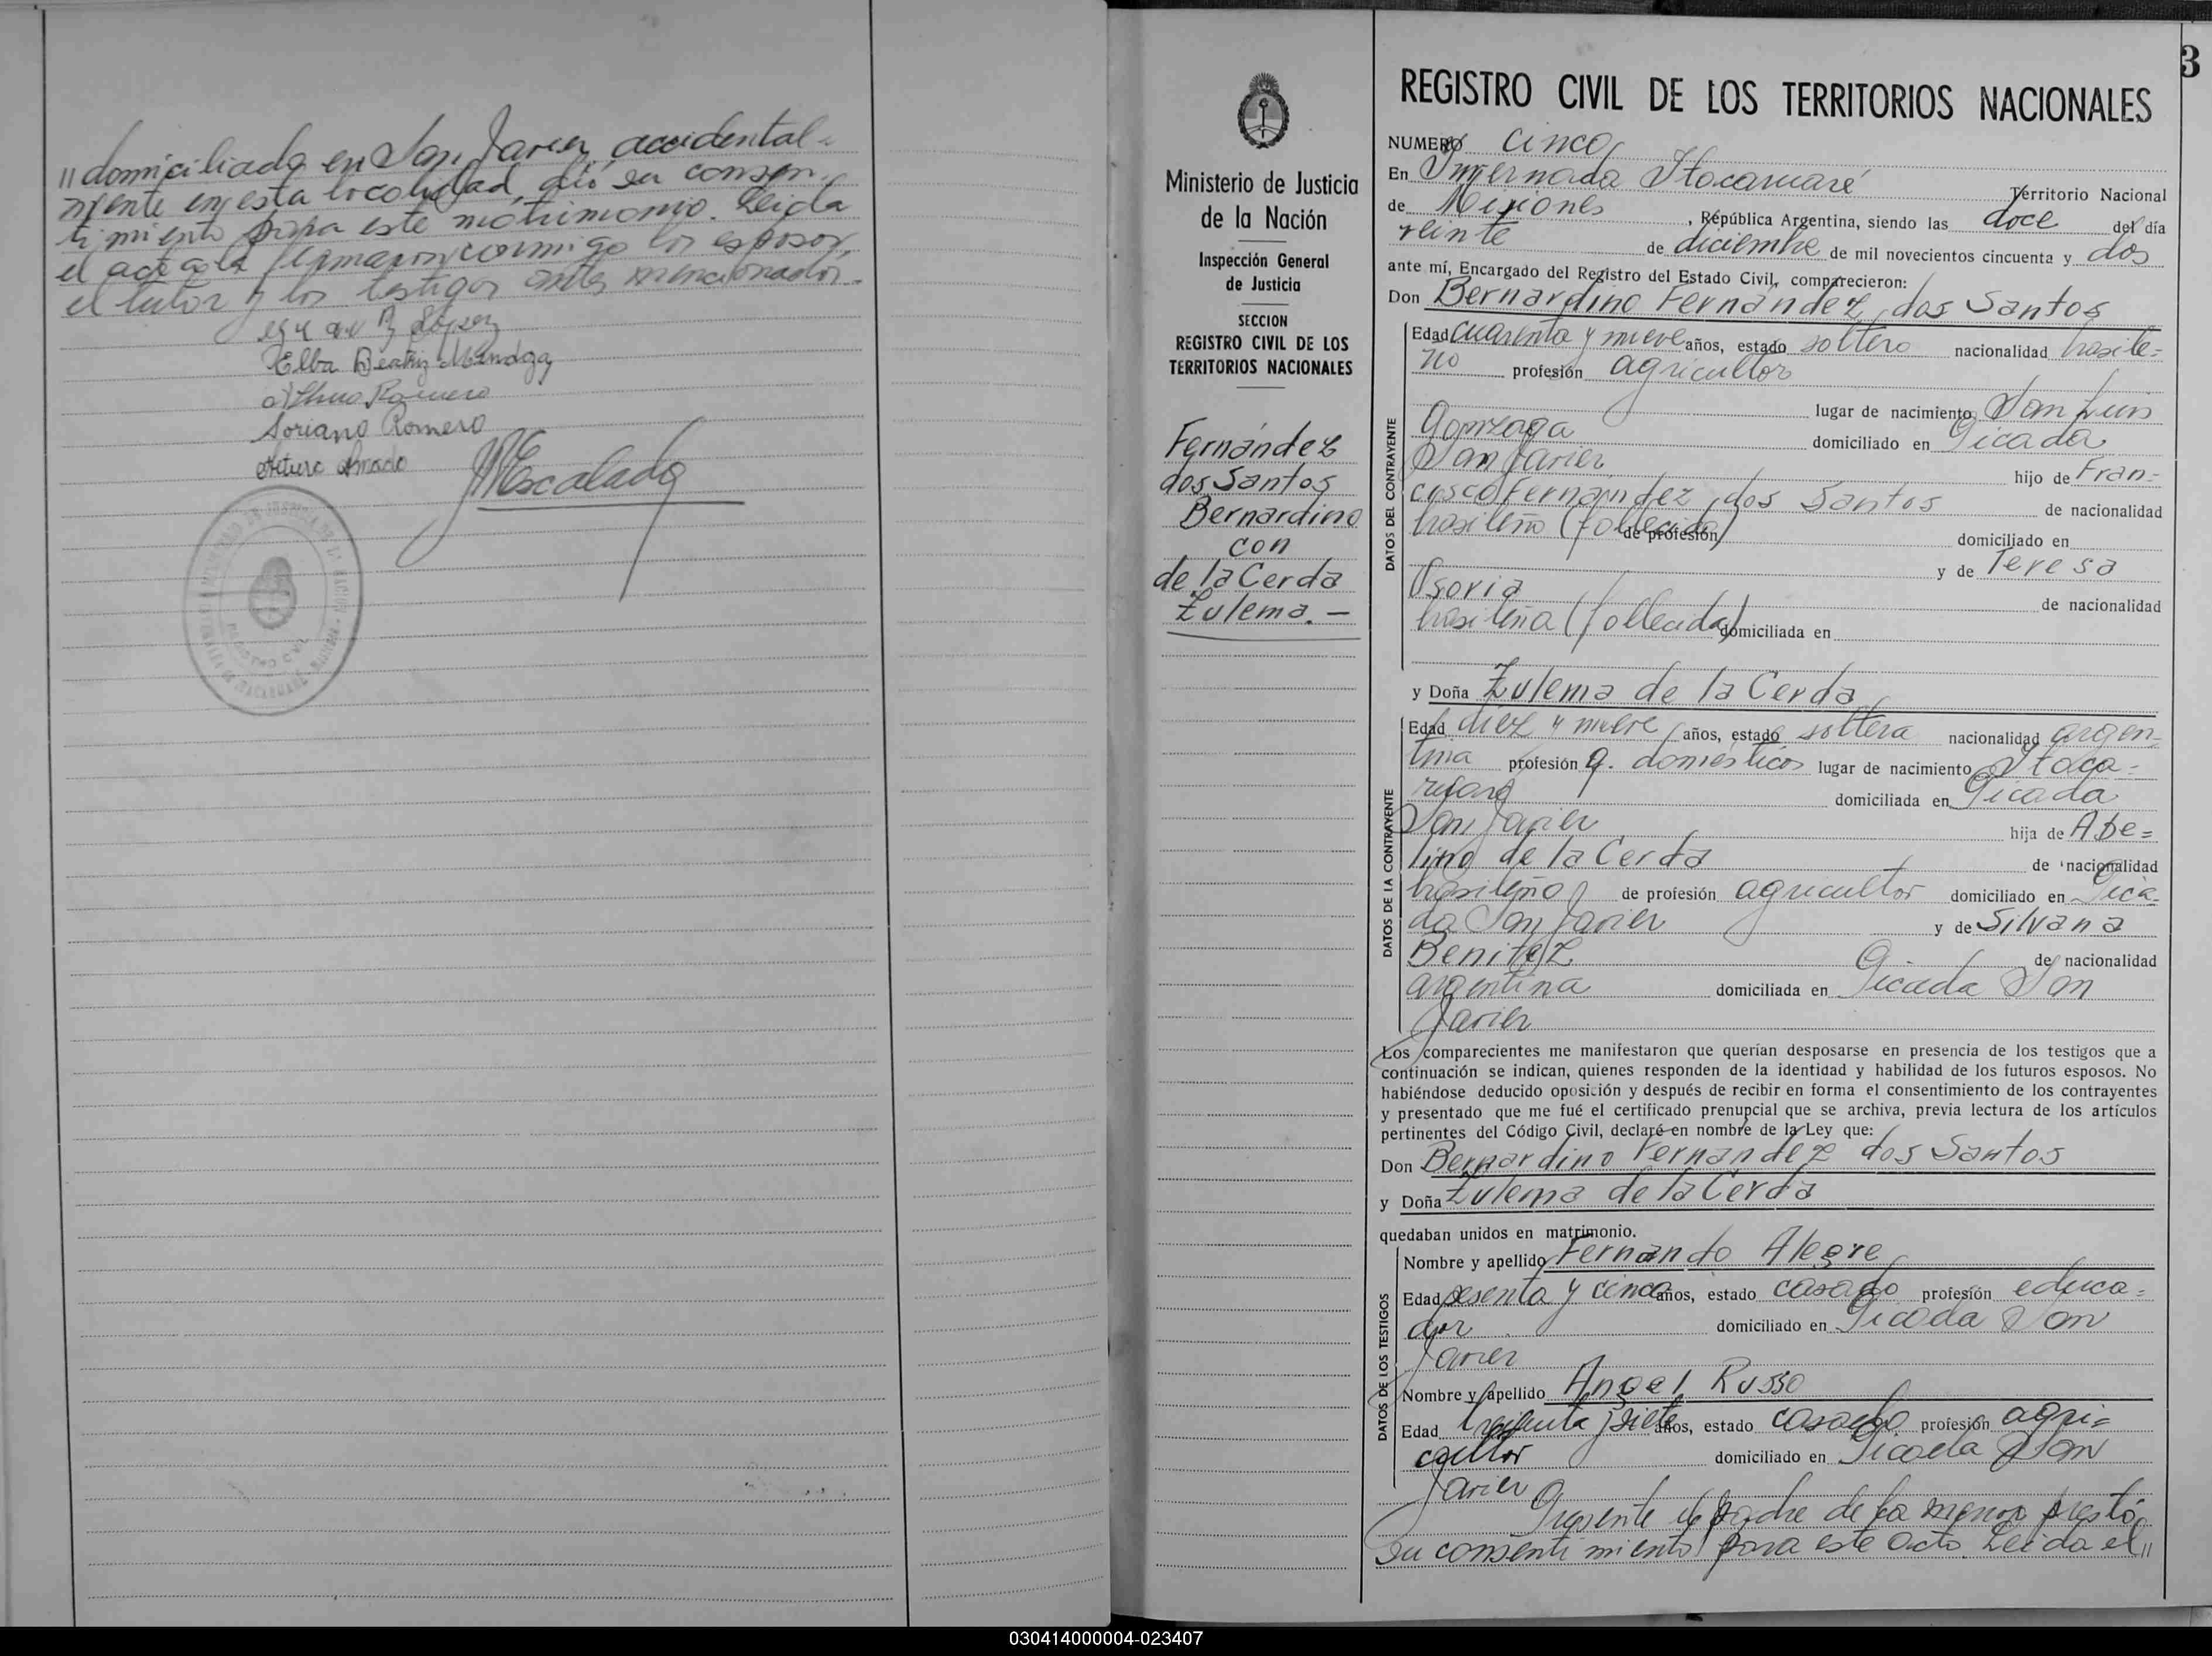 "domiciliada en San Javier, accidental-
mente en esta localidad, dió su consen-
timiento para este matrimonio. Leida
el acta la firmaron conmigo los esposos,
el tutor y los testigos antes mencionados.-
López
Elba Beatriz Mendoza
Romero
Soriano Romero
Arturo Amado
Escalada
REGISTRO CIVIL
3
Ministerio de Justicia
de la Nación
Inspección General
de Justicia
SECCION
REGISTRO CIVIL DE LOS
TERRITORIOS NACIONALES
Fernández
dos Santos
Bernardino
con
de la Cerda
Zulema.-
REGISTRO CIVIL DE LOS TERRITORIOS NACIONALES
NUMERO cinco
En Invernada Itacaruaré Territorio Nacional
de Misiones, República Argentina, siendo las doce del día
veinte de diciembre de mil novecientos cincuenta y dos
ante mí, Encargado del Registro del Estado Civil, comparecieron:
Don Bernardino Fernández dos Santos
DATOS DEL CONTRAYENTE
Edad cuarenta y nueve años, estado soltero nacionalidad brasile=
ño profesión agricultor
lugar de nacimiento San Luis
Gonzaga domiciliado en Picada
San Javier hijo de Fran-
cisco Fernández dos Santos de nacionalidad
brasileño (fallecido) de profesión domiciliado en
y de Teresa
Osoria de nacionalidad
brasileña (fallecida) domiciliada en
y Doña Zulema de la Cerda
DATOS DE LA CONTRAYENTE
Edad diez y nueve años, estado soltera nacionalidad argen-
tina profesión q. domésticos lugar de nacimiento Itaca-
ruaré domiciliada en Picada
San Javier hija de Abe=
lino de la Cerda de nacionalidad
brasileño de profesión agricultor domiciliado en Pica-
da San Javier y de Silvana
Benitez de nacionalidad
argentina domiciliada en Picada San
Javier
Los comparecientes me manifestaron que querían desposarse en presencia de los testigos que a
continuación se indican, quienes responden de la identidad y habilidad de los futuros esposos. No
habiéndose deducido oposición y después de recibir en forma el consentimiento de los contrayentes
y presentado que me fué el certificado prenupcial que se archiva, previa lectura de los artículos
pertinentes del Código Civil, declaré en nombre de la Ley que:
Don Bernardino Fernandez dos Santos
y Doña Zulema de la Cerda
quedaban unidos en matrimonio.
DATOS DE LOS TESTIGOS
Nombre y apellido Fernando Alegre
Edad sesenta y cinco años, estado casado profesión educa=
dor domiciliado en Picada San
Javier
Nombre y apellido Angel Russo
Edad treinta y siete años, estado casado profesión agri=
cultor domiciliado en Picada San
Javier
Presente el padre de la menor prestó
su consentimiento para este acto. Leida el"
030414000004-023407